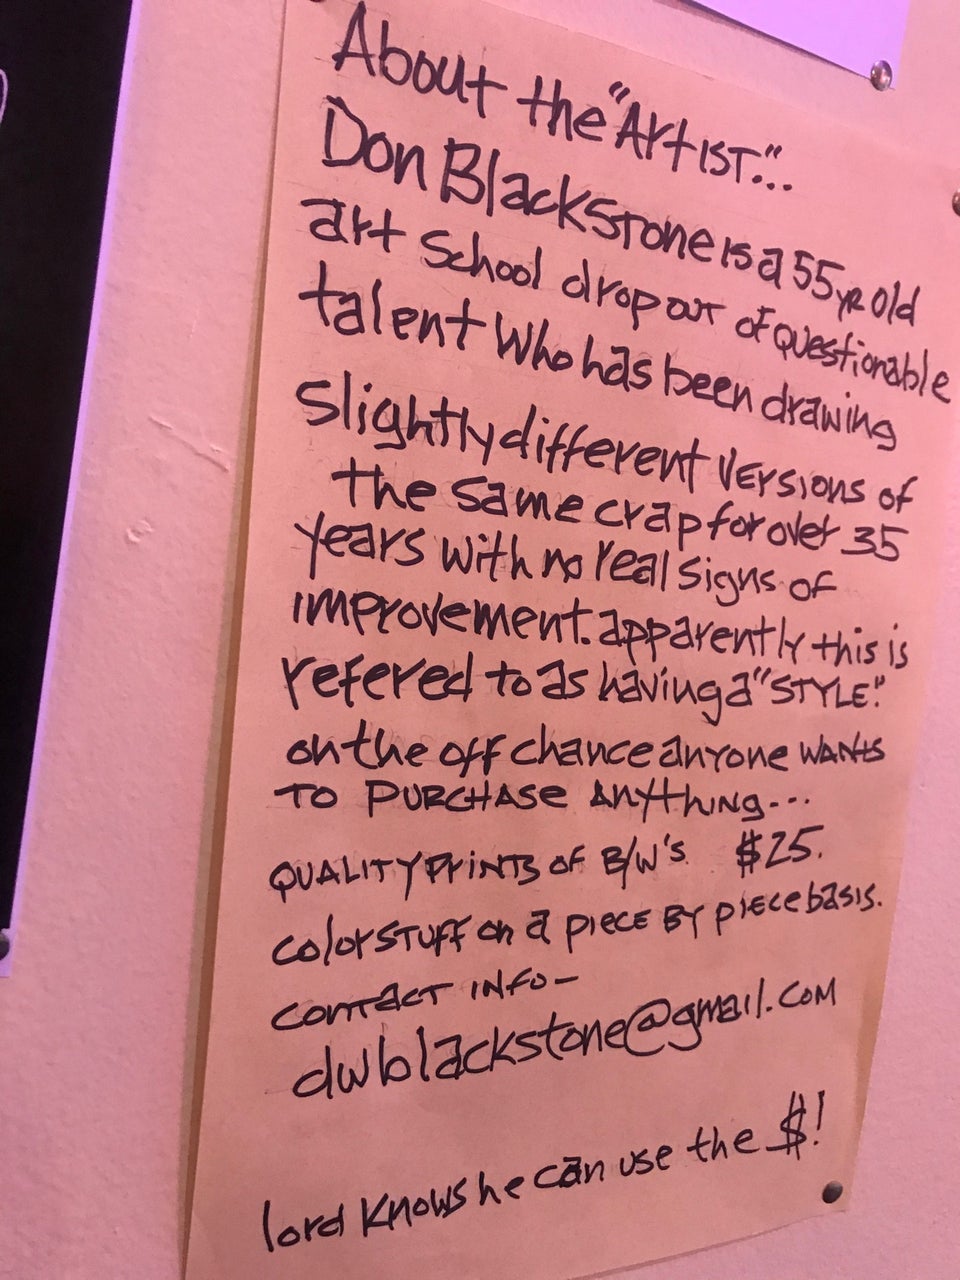 About the "Artist."...
Don Blackstone is a 55 yr old
art School drop out of questionable
talent Who has been drawing
Slightly different versions of
the same crap for over 35
years with no real signs of
improvement. apparently this is
refered to as having a "STYLE."
on the off chance anyone WANTS
TO PURCHASE ANYTHING...
QUALITY PRINTS OF B/W'S $25.
color STUFF on a piece BY piece basis.
contact info-
dwblackstone@gmail.com
lord knows he can use the $!